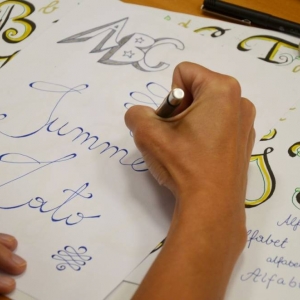 ABC
Summe
Lato
Alf
lfabet
alfabe
Alfabe